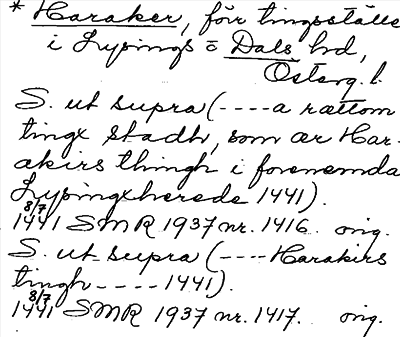 * Haraker, för tingsställe
i Lysings o Dals hd,
Österg. l.
S. ut supra (----a rættom
tingx stadh, som ær Har-
akirs thingh i forenemda
Lysingxhærede 1441).
8/7
1441 SMR 1937 nr. 1416. orig.
S. ut supra (----Harakirs
tingh----1441).
8/7
1441 SMR 1937 nr. 1417. orig.